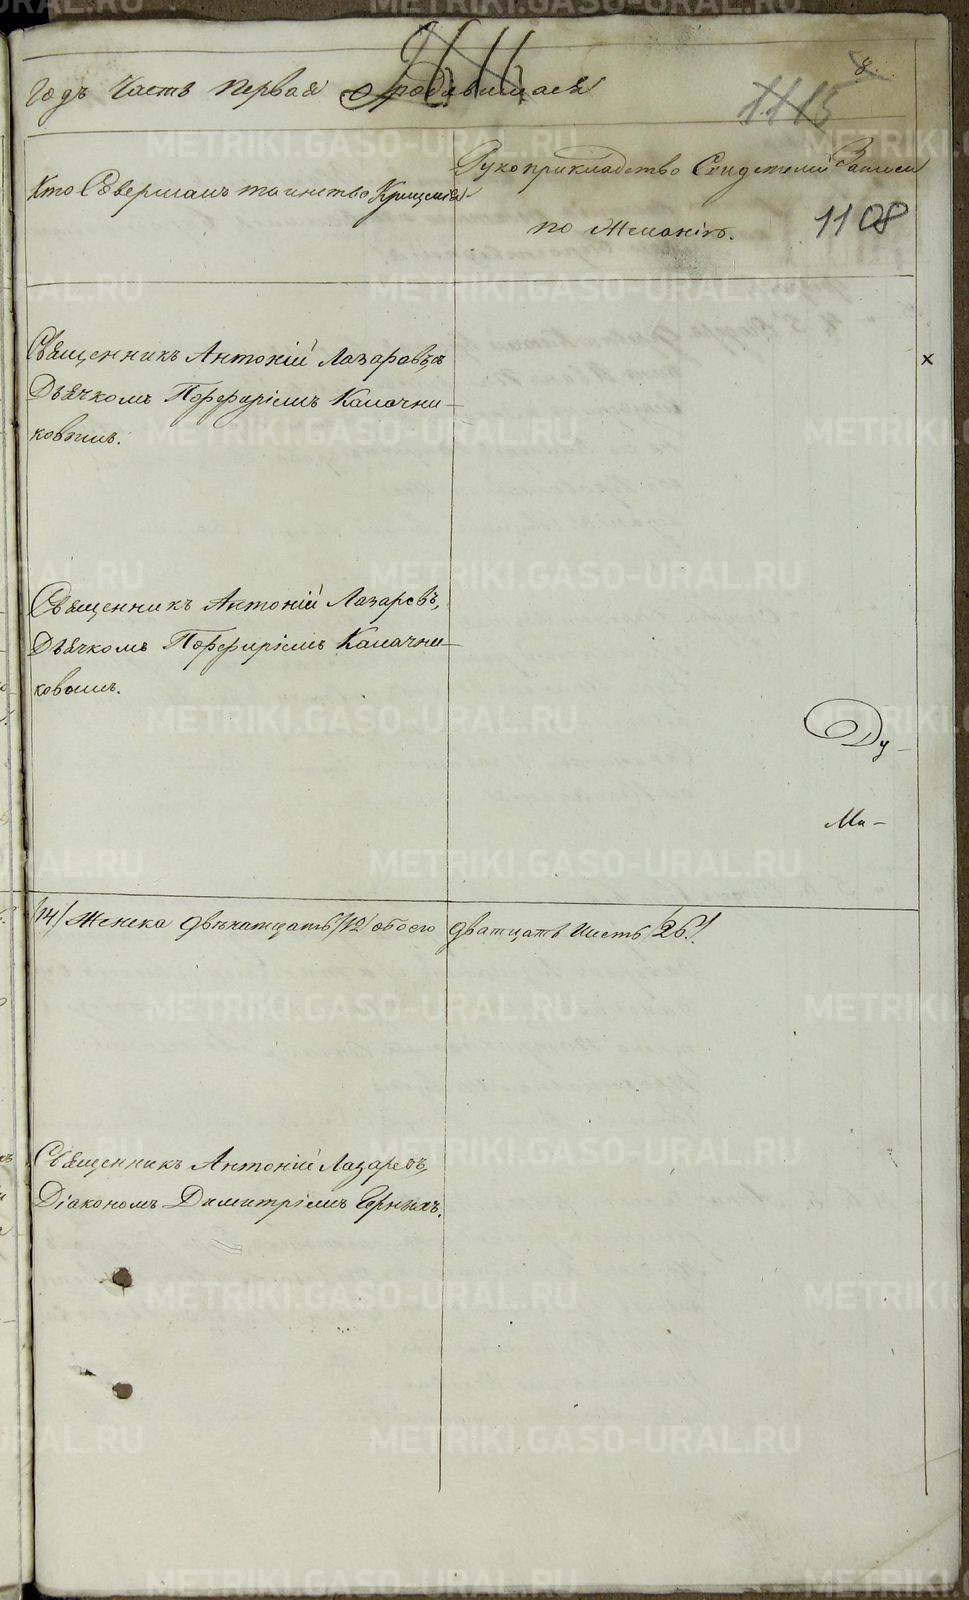 8.
Годъ Часть Первая о родившихся
1115
Кто Совершалъ таинство Крещенія
Рукоприкладство Свидетелей Записи
по Желанію.
1108
Священникъ Антоній Лазаревъ съ
Дьячкомъ Порфиріемъ Калачни-
ковымъ.
х
Священникъ Антоній Лазаревъ,
Дьячкомъ Порфиріемъ Калачни-
ковымъ.
Ду-
Ма-
/14/ Женска двѣнатцать /12/ обоего дватцать шесть /26/.
Священникъ Антоній Лазаревъ,
Діакономъ Димитріемъ
METRIKI.GASO-URAL.RU